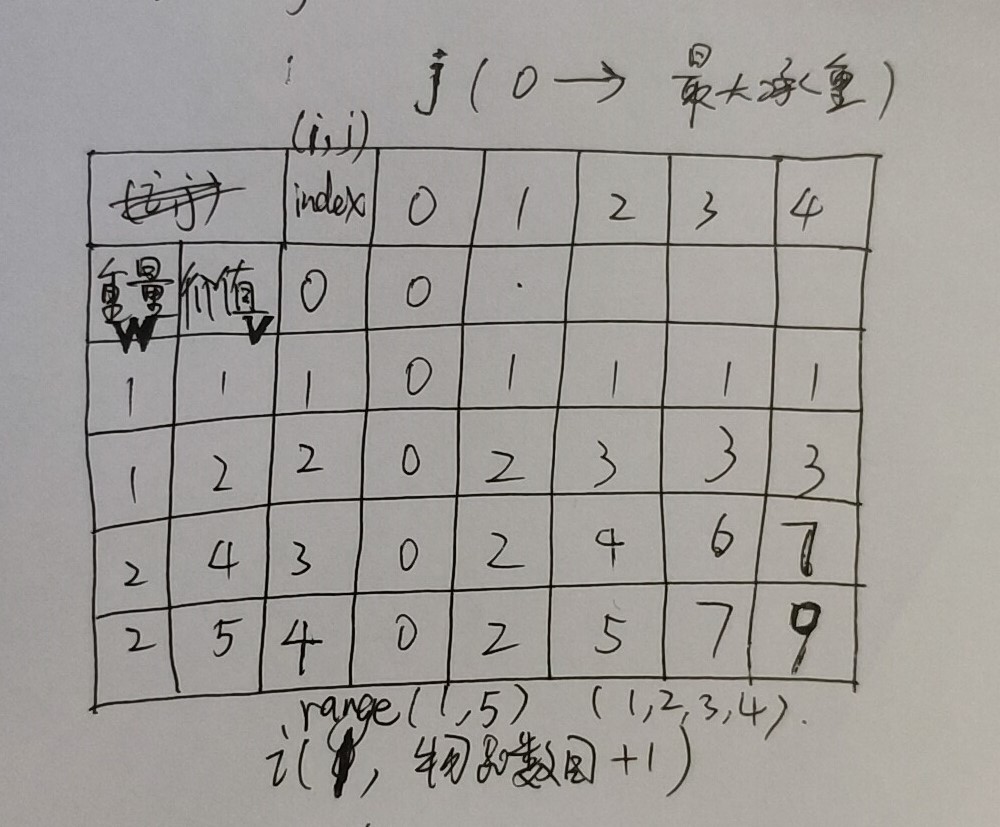 i
j ( 0 → 最大承重 )
(i,j)
(i,j) index 0 1 2 3 4
重量 W 价值 V 0 0 .
1 1 1 0 1 1 1 1
1 2 2 0 2 3 3 3
2 4 3 0 2 4 6 7
2 5 4 0 2 5 7 9
range(1,5) (1,2,3,4).
i(1, 物品数目+1)